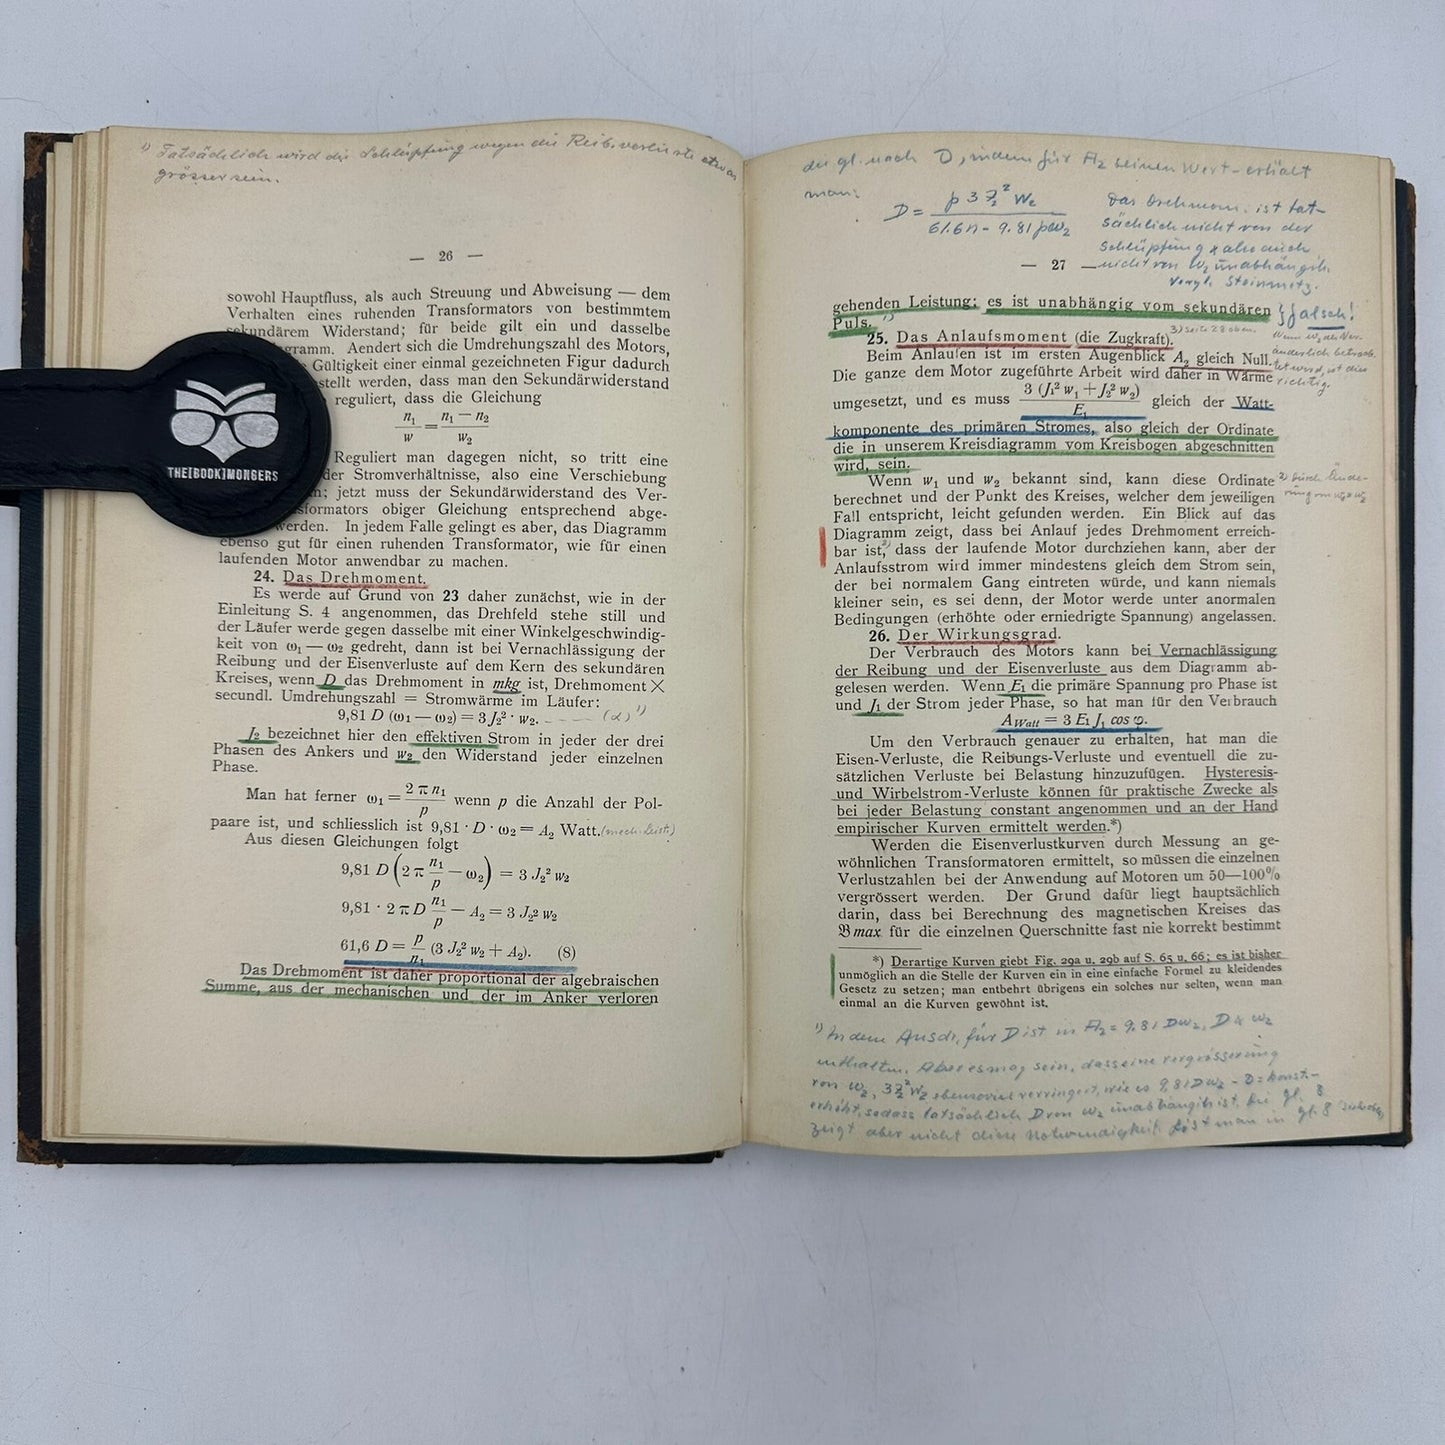 1) Tatsächlich wird die Schlüpfung wegen die Reib.verluste etwas
grösser sein.
— 26 —
sowohl Hauptfluss, als auch Streuung und Abweisung — dem
Verhalten eines ruhenden Transformators von bestimmtem
sekundärem Widerstand; für beide gilt ein und dasselbe
Aendert sich die Umdrehungszahl des Motors,
Gültigkeit einer einmal gezeichneten Figur dadurch
werden, dass man den Sekundärwiderstand
reguliert, dass die Gleichung
n₁/w = (n₁ — n₂)/w₂
THE[BOOK]MONGERS
Reguliert man dagegen nicht, so tritt eine
der Stromverhältnisse, also eine Verschiebung
jetzt muss der Sekundärwiderstand des Ver-
obiger Gleichung entsprechend abge-
werden. In jedem Falle gelingt es aber, das Diagramm
ebenso gut für einen ruhenden Transformator, wie für einen
laufenden Motor anwendbar zu machen.
24. Das Drehmoment.
Es werde auf Grund von 23 daher zunächst, wie in der
Einleitung S. 4 angenommen, das Drehfeld stehe still und
der Läufer werde gegen dasselbe mit einer Winkelgeschwindig-
keit von ω₁ — ω₂ gedreht, dann ist bei Vernachlässigung der
Reibung und der Eisenverluste auf dem Kern des sekundären
Kreises, wenn D das Drehmoment in mkg ist, Drehmoment ×
secundl. Umdrehungszahl = Stromwärme im Läufer:
9,81 D (ω₁ — ω₂) = 3 J₂² · w₂. - - - - (α) 1)
J₂ bezeichnet hier den effektiven Strom in jeder der drei
Phasen des Ankers und w₂ den Widerstand jeder einzelnen
Phase.
Man hat ferner ω₁ = 2 π n₁/p wenn p die Anzahl der Pol-
paare ist, und schliesslich ist 9,81 · D · ω₂ = A₂ Watt. (mech. Leist.)
Aus diesen Gleichungen folgt
9,81 D (2 π n₁/p — ω₂) = 3 J₂² w₂
9,81 · 2 π D n₁/p — A₂ = 3 J₂² w₂
61,6 D = p/n₁ (3 J₂² w₂ + A₂). (8)
Das Drehmoment ist daher proportional der algebraischen
Summe, aus der mechanischen und der im Anker verloren
die gl. nach D, indem für A₂ seinen Wert erhält
man:
D = p 3 J₂² w₂ / 61.6 n - 9.81 p ω₂
Das Drehmom. ist tat-
sächlich nicht von der
Schlüpfung & also auch
nicht von w₂ unabhängih.
Vergl. Steinmetz.
— 27 —
gehenden Leistung; es ist unabhängig vom sekundären
Puls. 1)
} falsch!
25. Das Anlaufsmoment (die Zugkraft).
3) Seite 28 oben.
Beim Anlaufen ist im ersten Augenblick A₂ gleich Null.
Die ganze dem Motor zugeführte Arbeit wird daher in Wärme
richtig.
umgesetzt, und es muss 3 (J₁² w₁ + J₂² w₂)/E₁ gleich der Watt-
komponente des primären Stromes, also gleich der Ordinate
die in unserem Kreisdiagramm vom Kreisbogen abgeschnitten
wird, sein.
Wenn w₁ und w₂ bekannt sind, kann diese Ordinate
2) durch Ände-
berechnet und der Punkt des Kreises, welcher dem jeweiligen
Fall entspricht, leicht gefunden werden. Ein Blick auf das
Diagramm zeigt, dass bei Anlauf jedes Drehmoment erreich-
bar ist, 2) dass der laufende Motor durchziehen kann, aber der
Anlaufsstrom wird immer mindestens gleich dem Strom sein,
der bei normalem Gang eintreten würde, und kann niemals
kleiner sein, es sei denn, der Motor werde unter anormalen
Bedingungen (erhöhte oder erniedrigte Spannung) angelassen.
26. Der Wirkungsgrad.
Der Verbrauch des Motors kann bei Vernachlässigung
der Reibung und der Eisenverluste aus dem Diagramm ab-
gelesen werden. Wenn E₁ die primäre Spannung pro Phase ist
und J₁ der Strom jeder Phase, so hat man für den Verbrauch
A Watt = 3 E₁ J₁ cos φ.
Um den Verbrauch genauer zu erhalten, hat man die
Eisen-Verluste, die Reibungs-Verluste und eventuell die zu-
sätzlichen Verluste bei Belastung hinzuzufügen. Hysteresis-
und Wirbelstrom-Verluste können für praktische Zwecke als
bei jeder Belastung constant angenommen und an der Hand
empirischer Kurven ermittelt werden.*)
Werden die Eisenverlustkurven durch Messung an ge-
wöhnlichen Transformatoren ermittelt, so müssen die einzelnen
Verlustzahlen bei der Anwendung auf Motoren um 50—100%
vergrössert werden. Der Grund dafür liegt hauptsächlich
darin, dass bei Berechnung des magnetischen Kreises das
𝔅 max für die einzelnen Querschnitte fast nie korrekt bestimmt
*) Derartige Kurven giebt Fig. 29a u. 29b auf S. 65 u. 66; es ist bisher
unmöglich an die Stelle der Kurven ein in eine einfache Formel zu kleidendes
Gesetz zu setzen; man entbehrt übrigens ein solches nur selten, wenn man
einmal an die Kurven gewöhnt ist.
1) In dem Ausdr. für D ist in A₂ = 9.81 Dω₂, D & ω₂
enthalten. Aber es mag sein, dass eine vergrösserung
von w₂, 3J₂²w₂ ebensoviel verringert, wie es 9,81Dω₂ - D = konst.-
erhöht, sodass tatsächlich D von w₂ unabhängih ist. Die gl. 8
zeigt aber nicht diese Notwendigkeit. Löst man in gl. 8